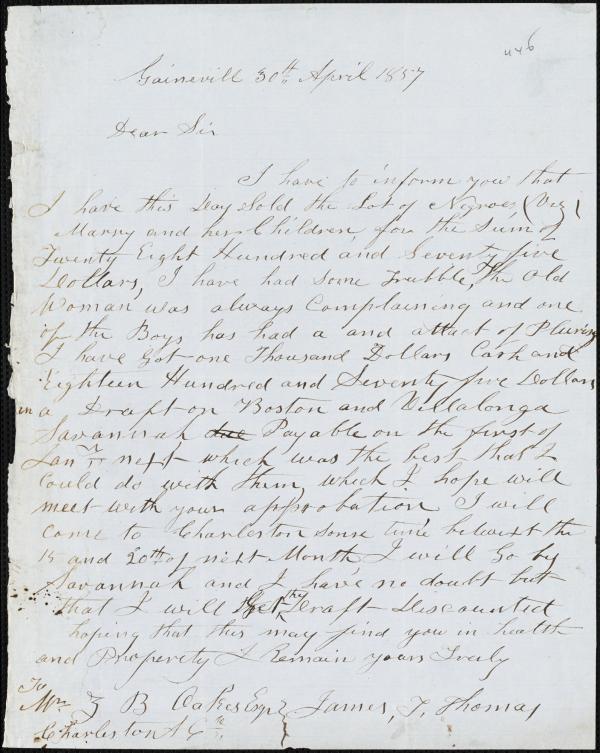 446
Gainsvill 30th April 1857
Dear Sir
I have to inform you that
I have this Day Sold the Lot of Negroes (Viz)
Marry and her Children for the Sum of
Twenty Eight Hundred and Seventy five
Dollars, I have had Some Trubble, the Old
Woman was always Complaining and one
of the Boys has had a and attact of Plurisy
I have Got one Thousand Dollars Cash and
Eighteen Hundred and Seventy five Dollars
in a Draft on Boston and Villalonga
Savannah due Payable on the first of
Jany next which was the best that I
Could do with them which I hope will
meet with your approbation I will
come to Charleston some time betwixt the
15 and 20th of next Month I will Go by
Savannah and I have no doubt but
that I will Get the Draft Discounted
hoping that this may find you in health
and Properety I Remain yours Truly
To
Mr Z B Oakes Esqr James, T, Thomas
Charleston S C